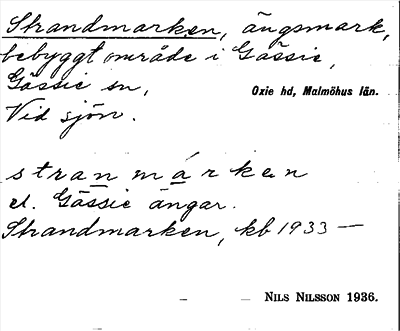 Strandmarken, ängsmark,
bebyggt område i Gässie,
Gässie sn,
Oxie hd, Malmöhus län.
Vid sjön.
stranmárken
el. Gässie ängar.
Strandmarken, kb 1933 —
NILS NILSSON 1936.